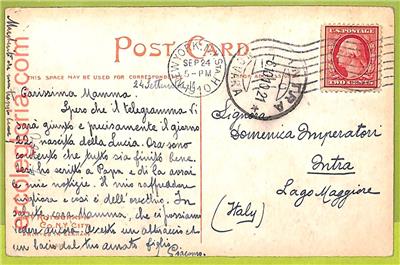 POST CARD.
THIS SPACE MAY BE USED FOR CORRESPONDENCE
NEW YORK, N.Y. STA. H
SEP 24
5-PM
1910
INTRA
U.S. POSTAGE
TWO CENTS
24 Settembre
Carissima Mamma.
Spero che il telegramma vi
sarà giunto e precisamente il giorno
della nascita della Lucia. Ora sono
contento che tutto sia finito bene.
ieri ho scritto a Papa e di la avrai
mie notizie. Il mio raffreddore
migliora e così è dell'
saluto cara Mamma, che ci possiamo
vedere ancora. Accetto un abbraccio ed
un bacio dal tuo amato figlio
Giacomo.
Signora
Domenica Imperatori
Intra
Lago Maggiore
(Italy)
ecolegria.com